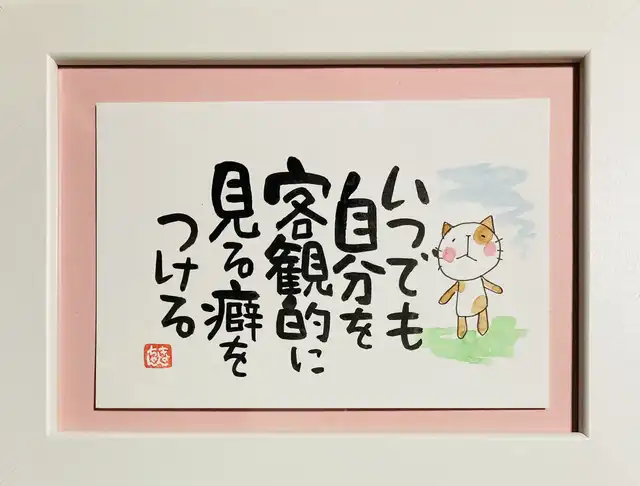 いつでも
自分を
客観的に
見る癖を
つける